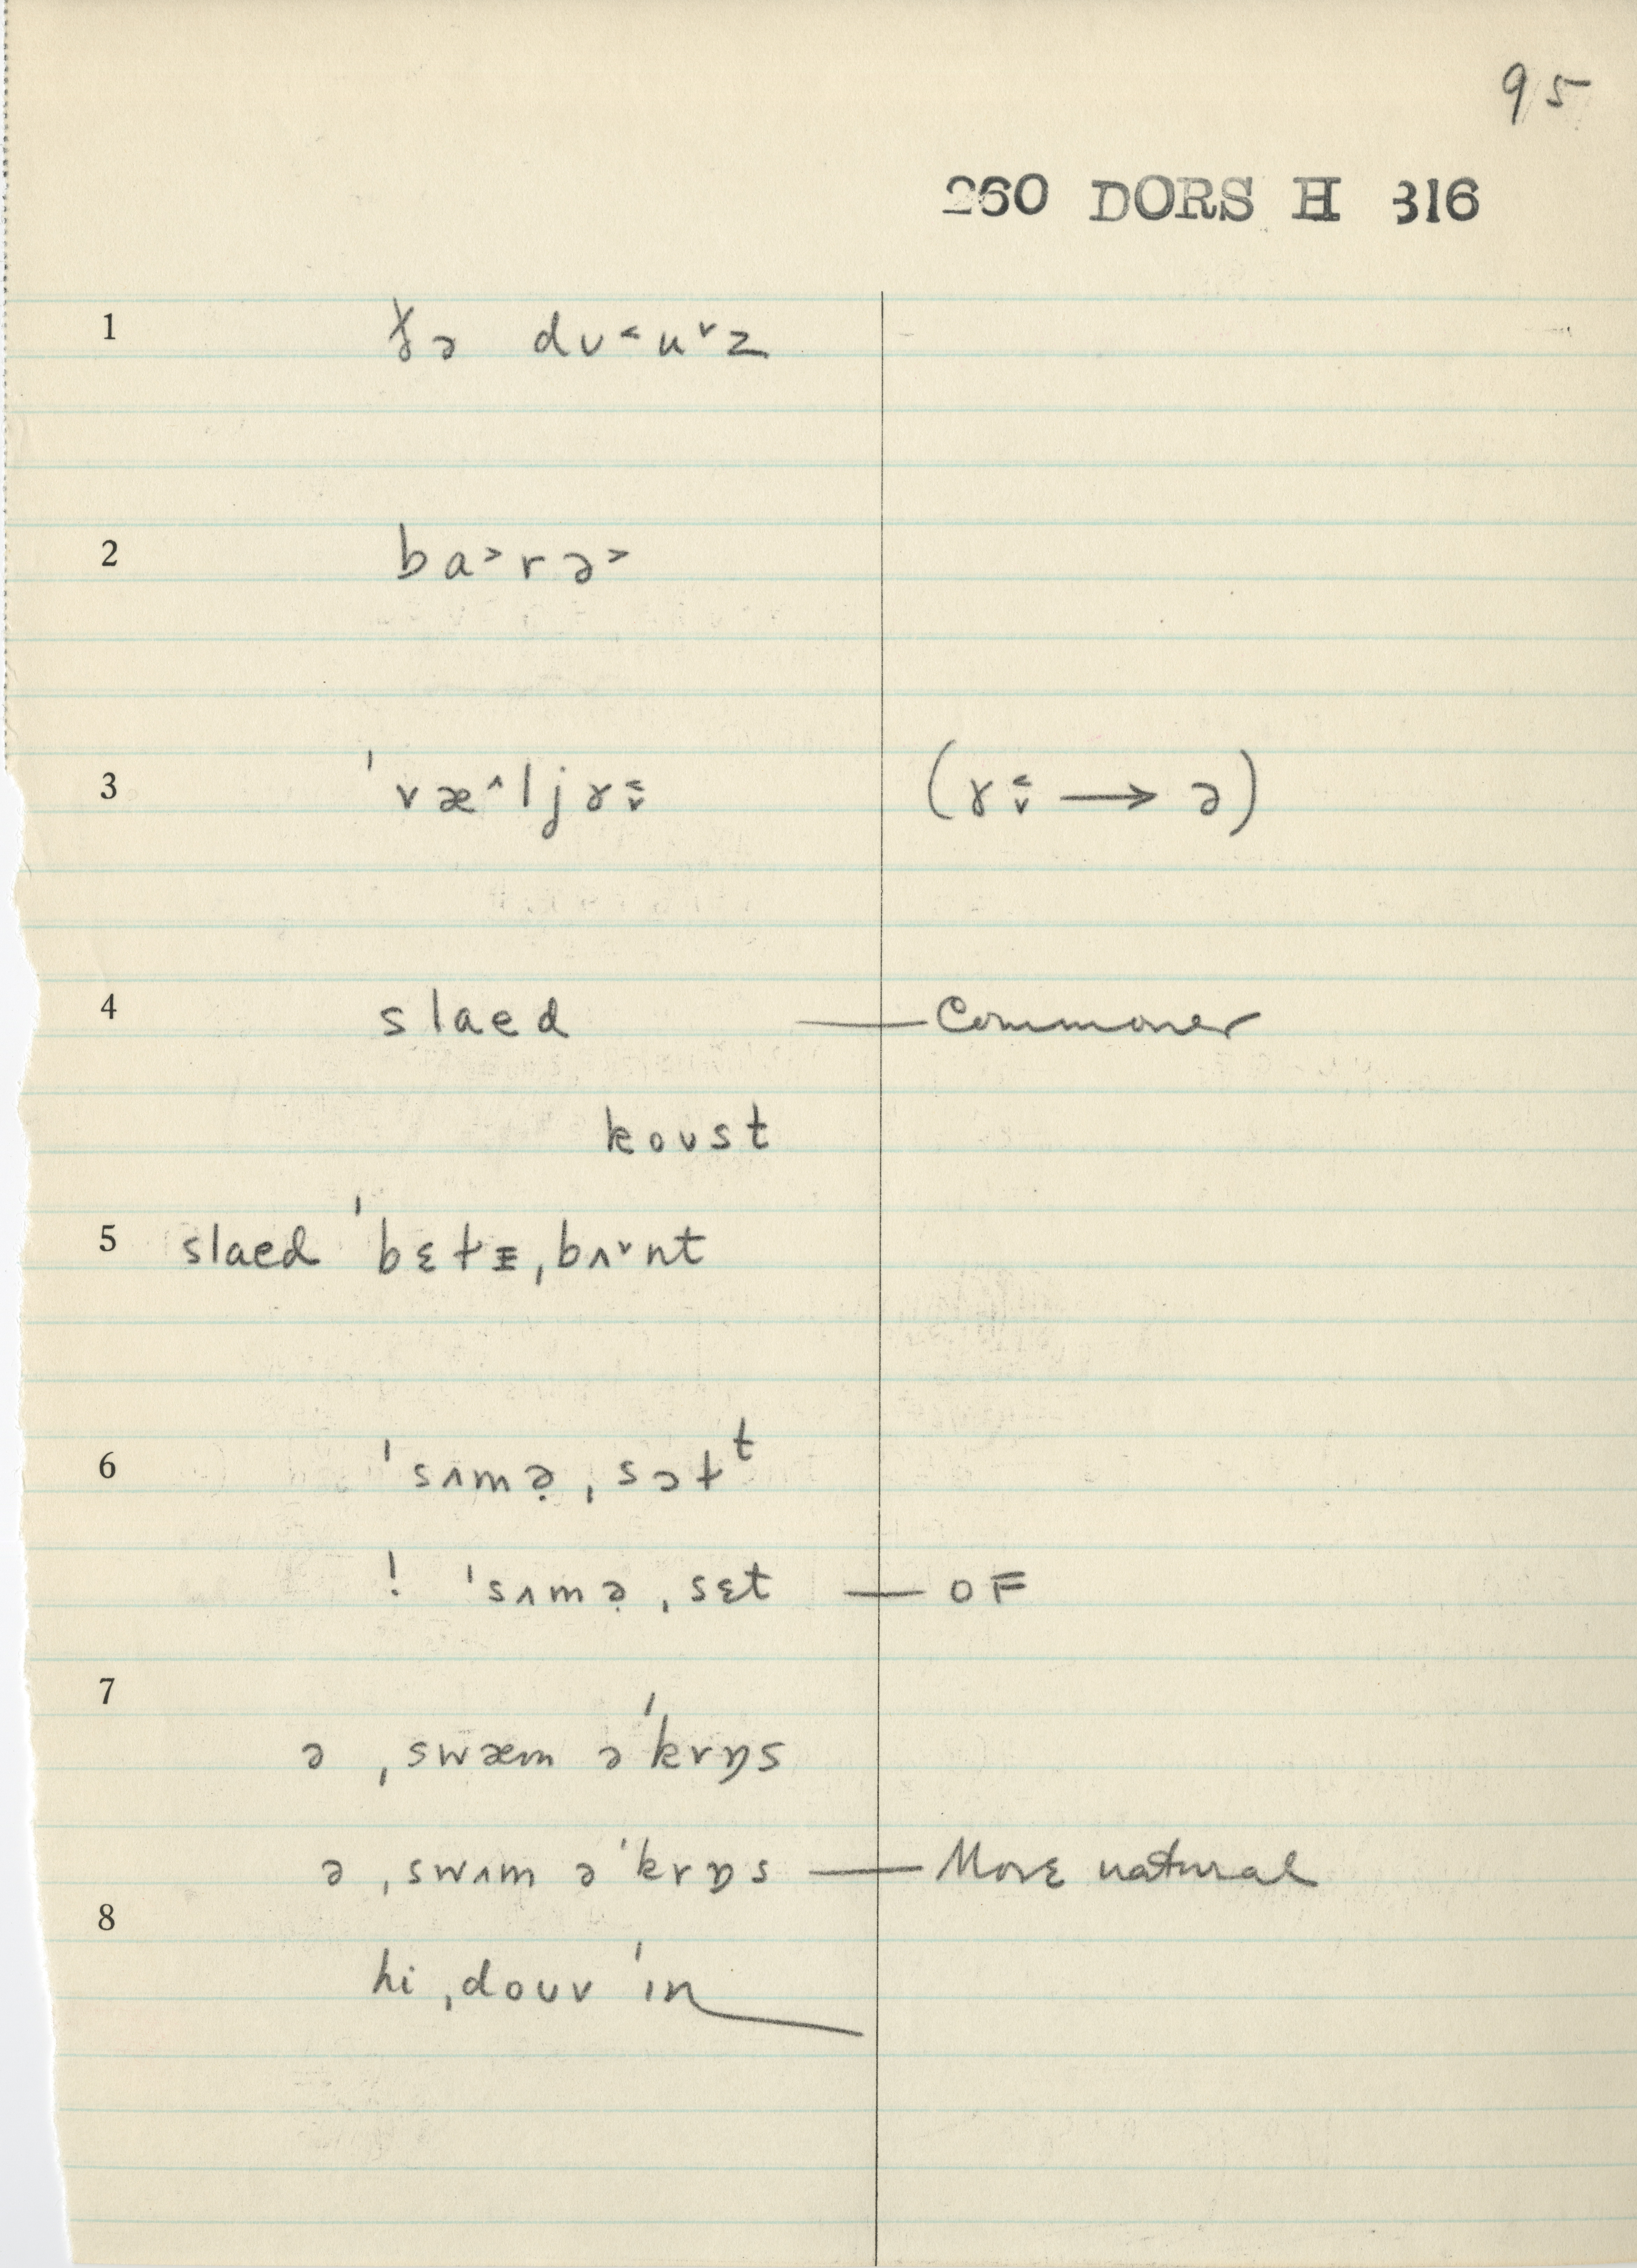 95
260 DORS H 316
1 ɣə dʊ˂u˅z
2 ba˃rə˃
3 ˈvæ˄ljɤ˂˅ (ɤ˂˅ → ə)
4 slaed — Commoner
koʊst
5 slaed ˈbɛt̬ɪ ˌbʌ˅nt
6 ˈsʌmə̣ ˌsɔt̬ᵗ
! ˈsʌmə̣ ˌsɛt — OF
7
ə ˌswæm əˈkrɒs
ə ˌswʌm əˈkrɒs — More natural
8
hi ˌdoʊv ˈɪn